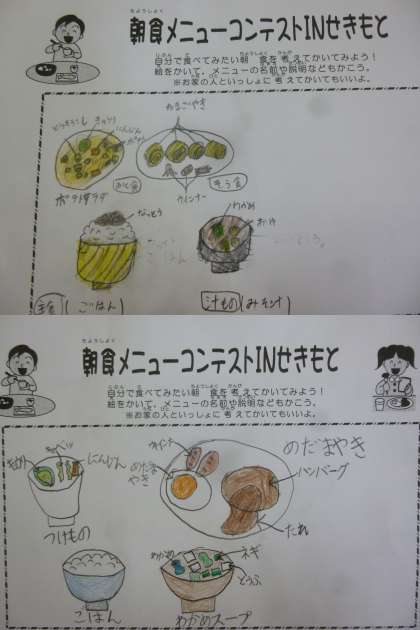 朝食メニューコンテストINせきもと
自分で食べてみたい朝食を考えてかいてみよう！
絵をかいて、メニューの名前や説明などもかこう。
※お家の人といっしょに考えてかいてもいいよ。
きゅうり
にんじん
たまごやき
ポテトサラダ
ウインナー
なっとう
わかめ
ごはん
主食(ごはん)
汁もの(みそ汁)
ちょうしょく
朝食メニューコンテストINせきもと
自分で食べてみたい朝食を考えてかいてみよう！
絵をかいて、メニューの名前や説明などもかこう。
※お家の人といっしょに考えてかいてもいいよ。
キャベツ
にんじん
つけもの
ウインナー
めだまやき
めだまやき
ハンバーグ
たれ
ごはん
わかめ
ネギ
とうふ
わかめスープ